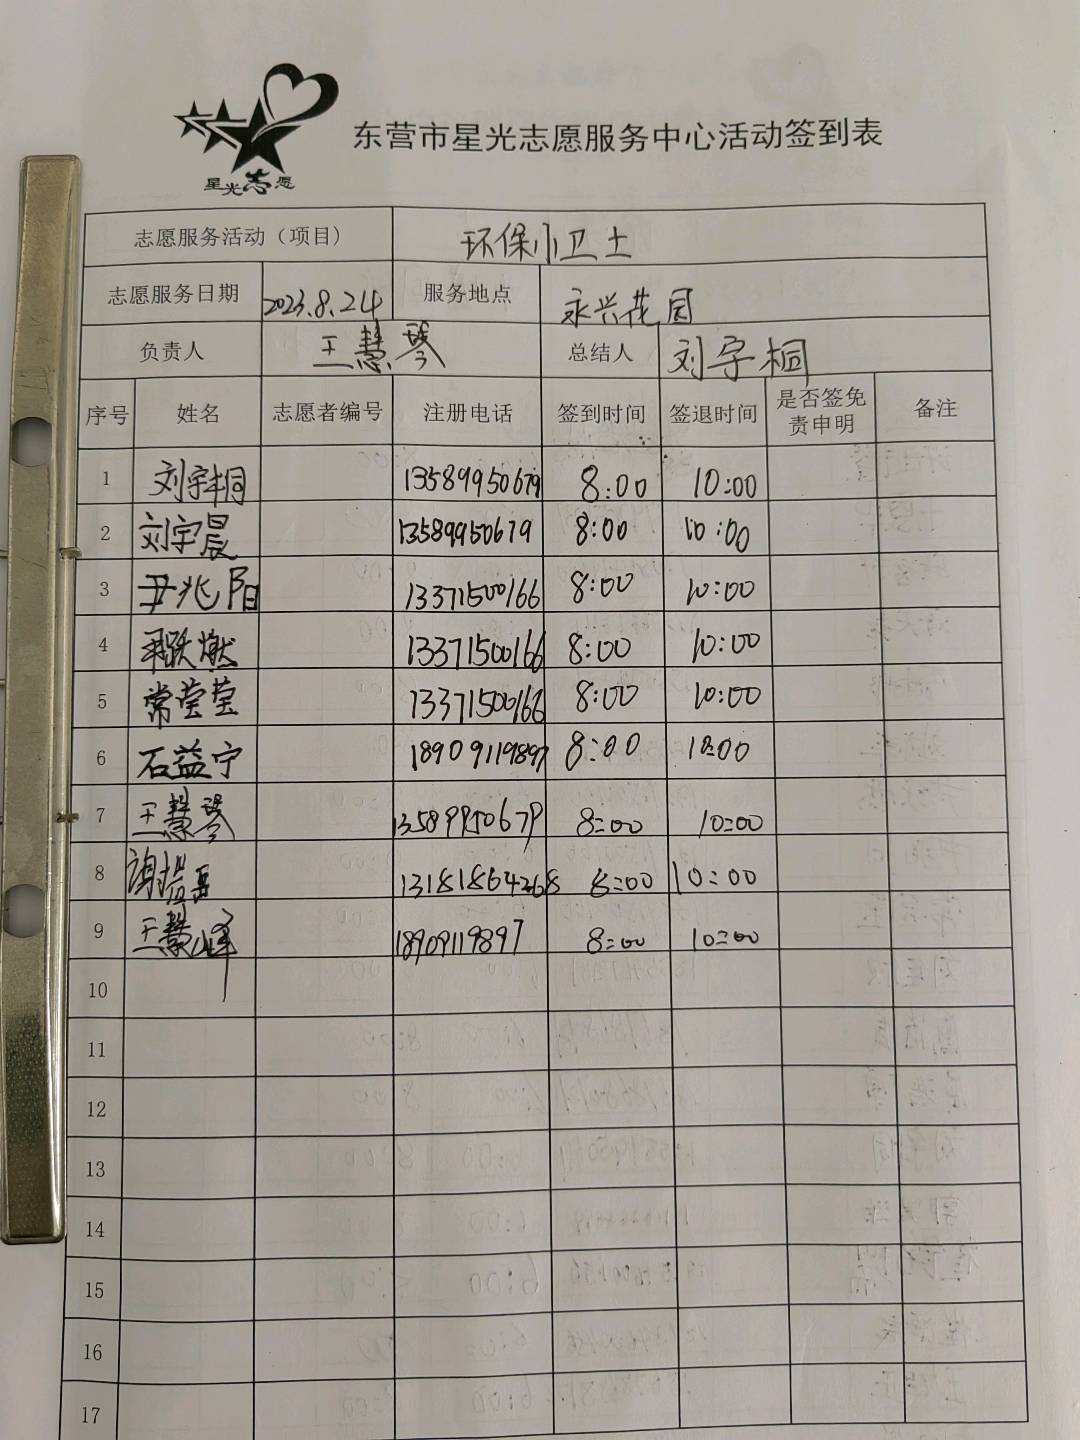 星光志愿
东营市星光志愿服务中心活动签到表
志愿服务活动（项目） 环保小卫士
志愿服务日期 2023.8.24 服务地点 永兴花园
负责人 王慧琴 总结人 刘宇桐
序号 姓名 志愿者编号 注册电话 签到时间 签退时间 是否签免责申明 备注
1 刘宇桐 13589950679 8:00 10:00
2 刘宇晨 13589950679 8:00 10:00
3 尹兆阳 13371500166 8:00 10:00
4 13371500166 8:00 10:00
5 常莹莹 13371500166 8:00 10:00
6 石益宁 18909119897 8:00 10:00
7 王慧琴 13589950679 8:00 10:00
8 13181864268 8:00 10:00
9 王慧峰 18909119897 8:00 10:00
10
11
12
13
14
15
16
17